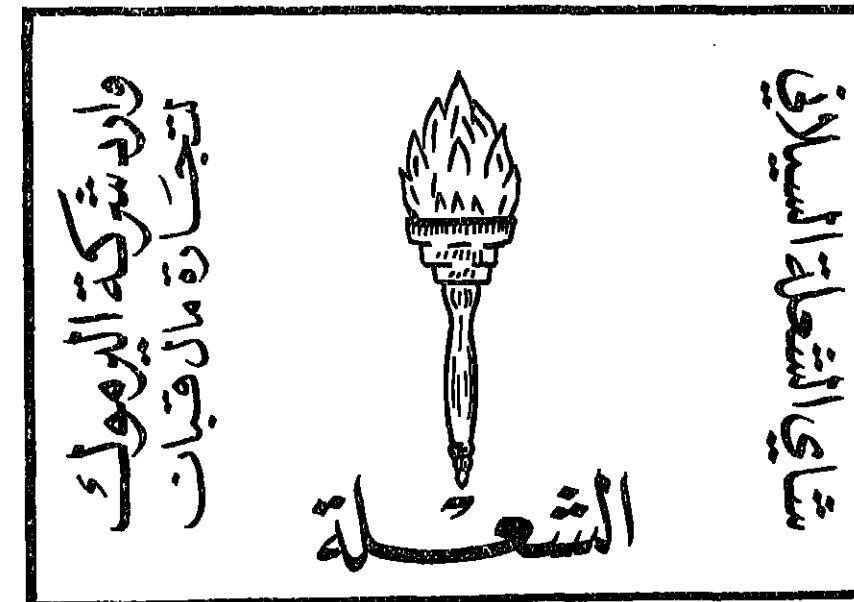 شاي الشعلة السيلاني
الشُعلة
وارد شركة اليرموك
تجَارة مال قبان